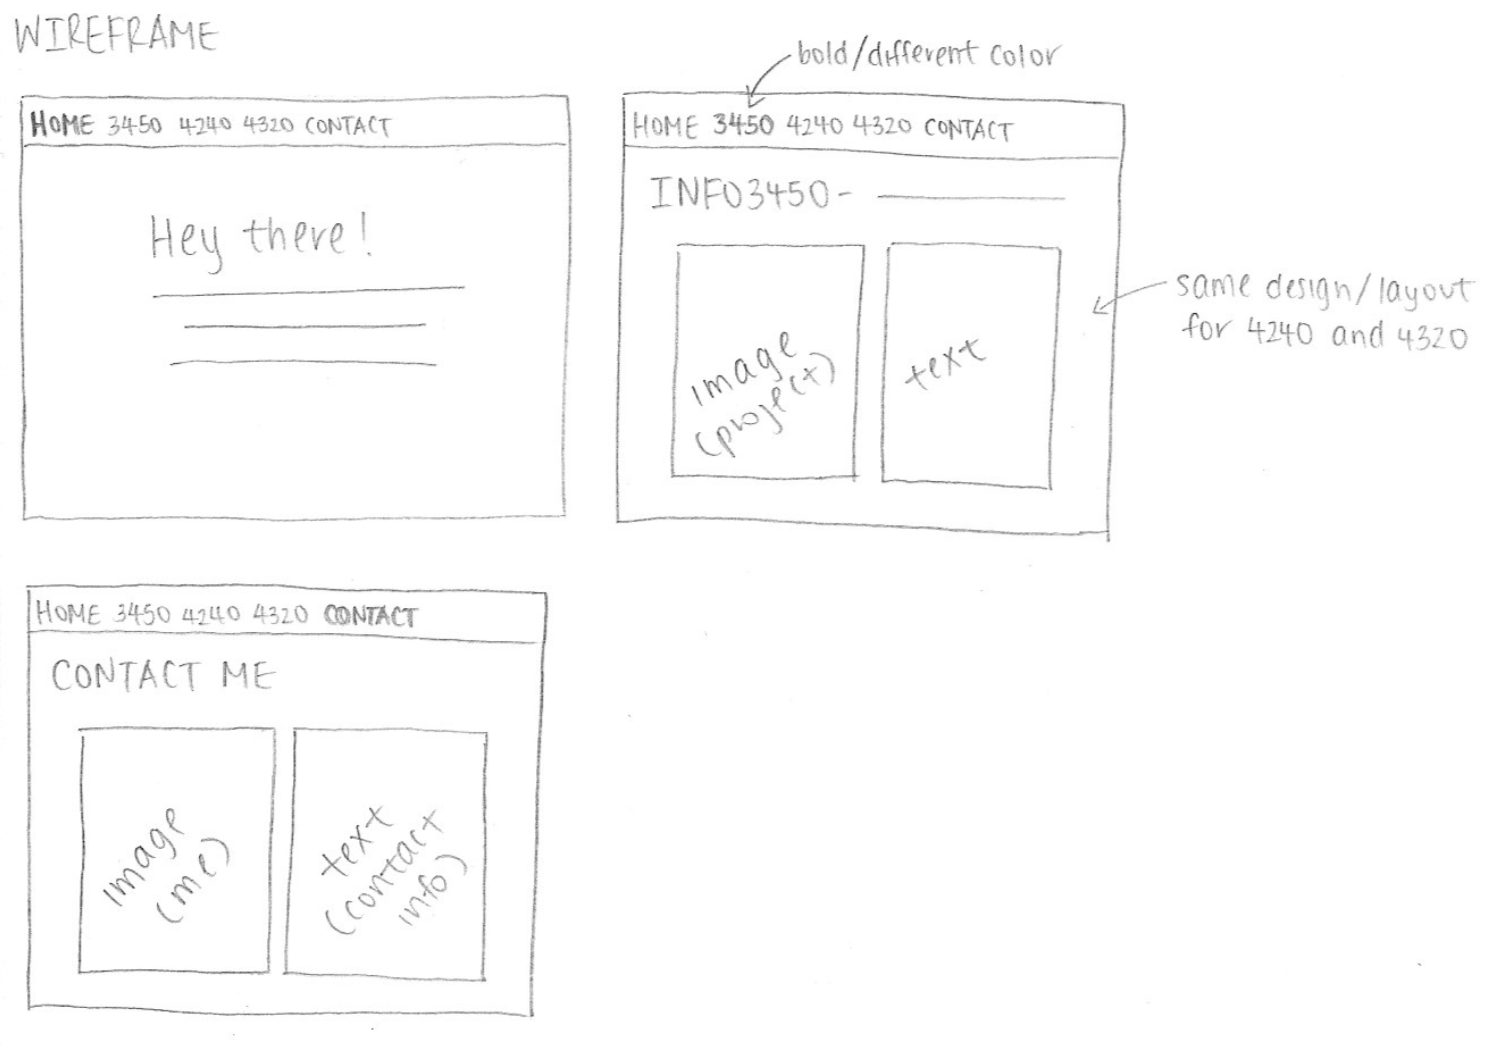 WIREFRAME
bold/different color
HOME 3450 4240 4320 CONTACT
Hey there!
HOME 3450 4240 4320 CONTACT
INFO3450-
image
(project)
text
same design/layout
for 4240 and 4320
HOME 3450 4240 4320 CONTACT
CONTACT ME
image
(me)
text
(contact
info)